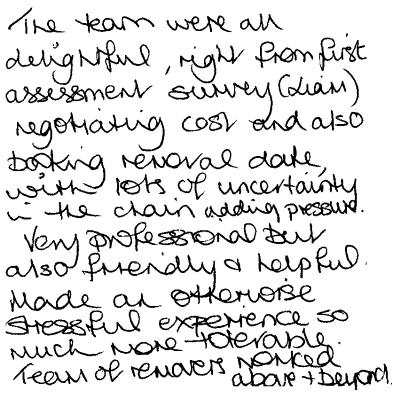 The team were all
delightful, right from first
assessment survey (Liam)
negotiating cost and also
booking removal date,
with lots of uncertainty
in the chain adding pressure.
Very professional but
also friendly & helpful.
Made an otherwise
stressful experience so
much more tolerable.
Team of removers worked
above + beyond